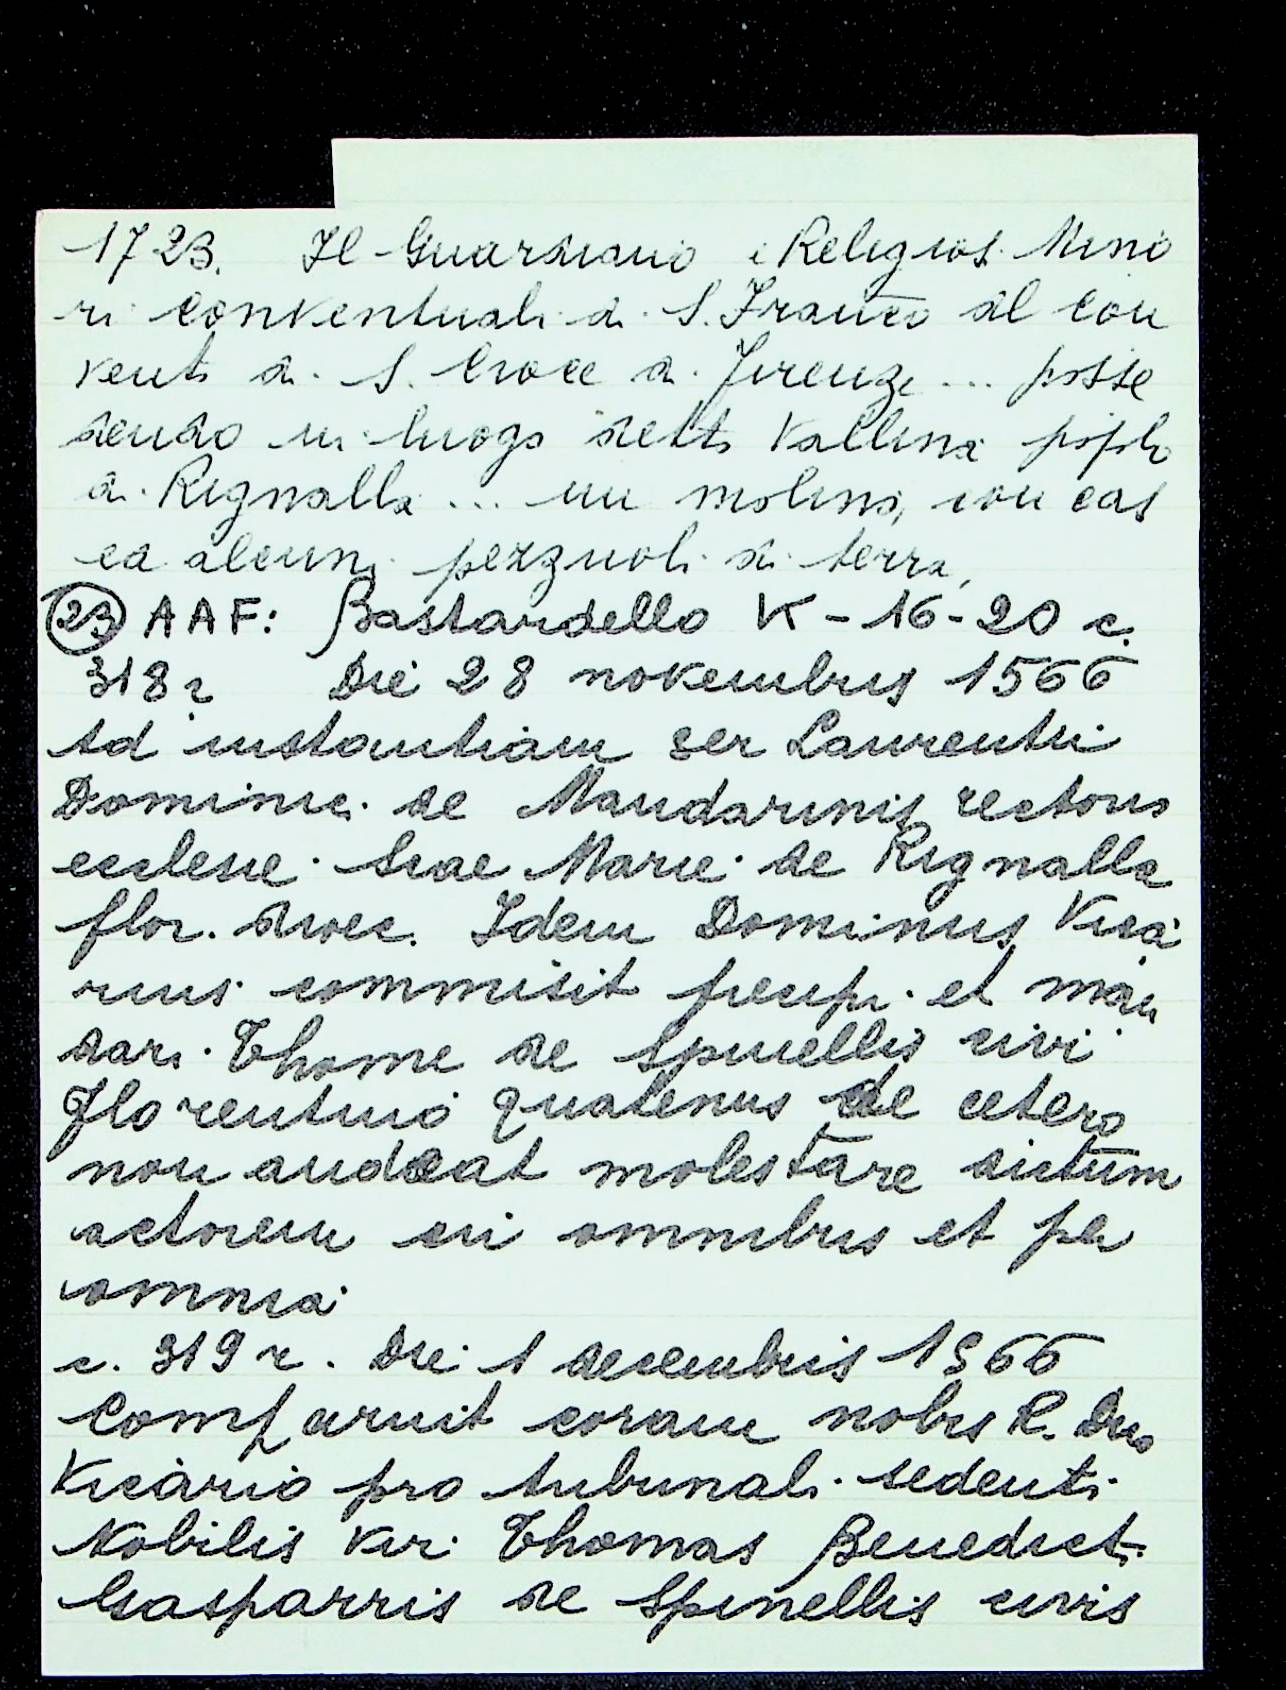 1723. Il Guardiano e Religiosi Mino
ri conventuali di S. Franco al con
vento di S. Croce di Firenze ... posse
dendo in luogo detto Vallina popolo
di Rignalla ... un molino, con cas
ed alcuni pezzuoli di terra,
(23) AAF: Bastardello V - 16 - 20 c.
318r Die 28 novembris 1566
Ad instantiam ser Laurentii
Dominici de Mandarinis rectoris
ecclesie Scae Marie de Rignalla
flor. dioec. Idem Dominus Vica
rius commisit precipi et man
dari Thome de Spinellis civi
Florentino quatenus de cetero
non audeat molestare dictum
actorem in omnibus et per
omnia
c. 319r. Die 1 decembris 1566
Comparuit coram nobis R. Dno
Vicario pro tribunali sedenti
Nobilis Vir Thomas Benedicti
Gasparris de Spinellis civis